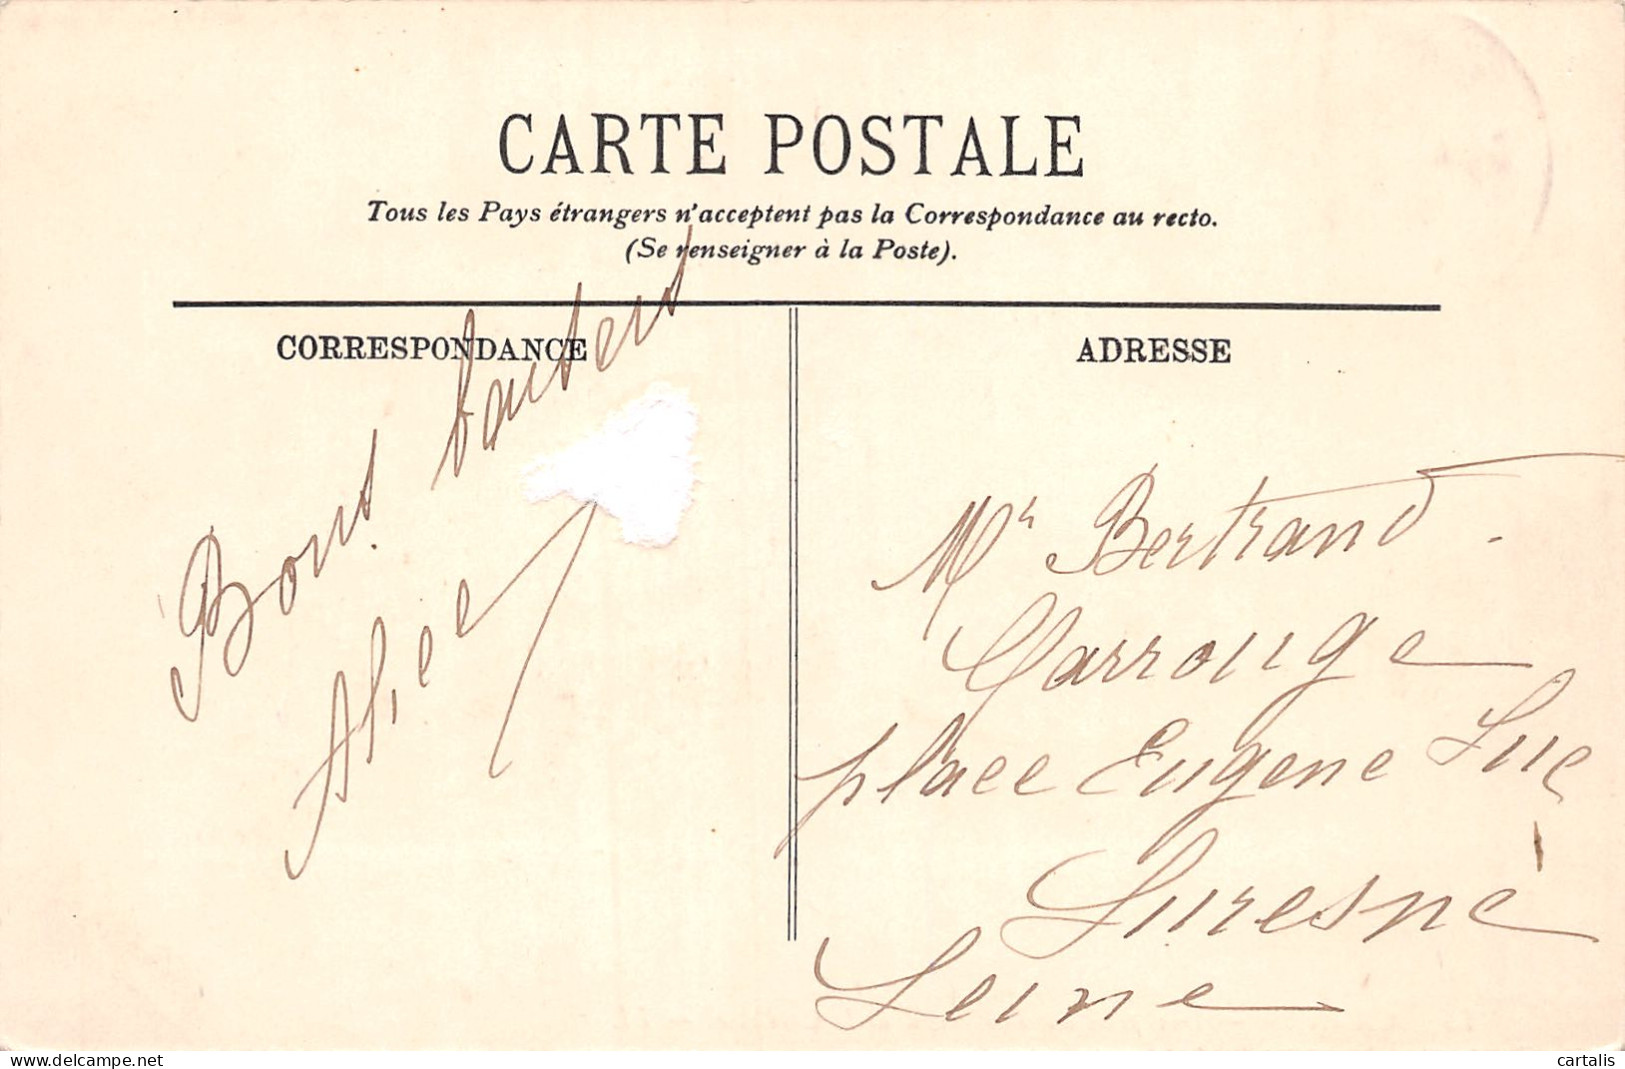 CARTE POSTALE
Tous les Pays étrangers n'acceptent pas la Correspondance au recto.
(Se renseigner à la Poste).
CORRESPONDANCE
ADRESSE
Bons
Alice
Mr Bertrand
Carrouge
place Eugene Sue
Suresne
Seine
www.delcampe.net
cartalis